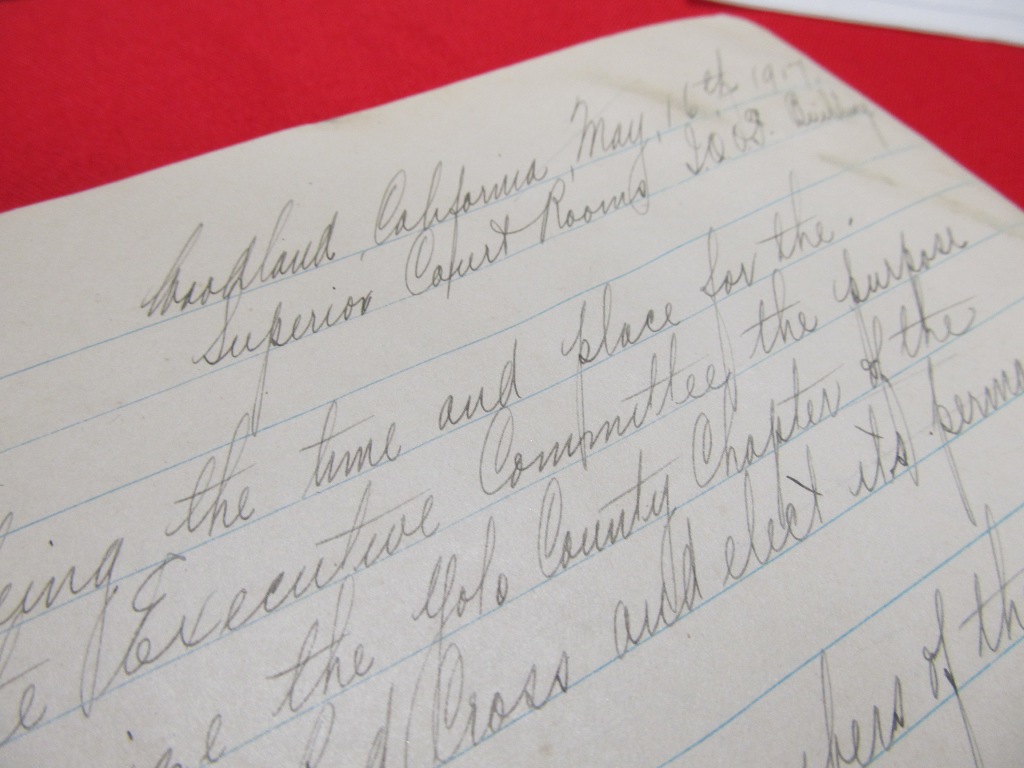 Woodland, California, May, 16th 1917.
Superior Court Rooms I.O.O.F. Building
eing the time and place for the.
te Executive Committee, the purpose
the Yolo County Chapter of the
d Cross and elect its perma
bers of th